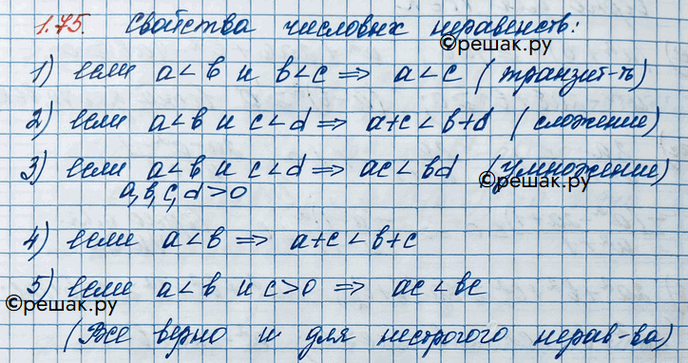 1.75. Свойства числовых неравенств:
©решак.ру
1) если a<b и b<c ⇒ a<c (транзит-ть)
2) если a<b и c<d ⇒ a+c<b+d (сложение)
3) если a<b и c<d ⇒ ac<bd (умножение)
a,b,c,d>0
©решак.ру
4) если a<b ⇒ a+c<b+c
5) если a<b и c>0 ⇒ ac<bc
©решак.ру
(Все верно и для нестрогого нерав-ва)